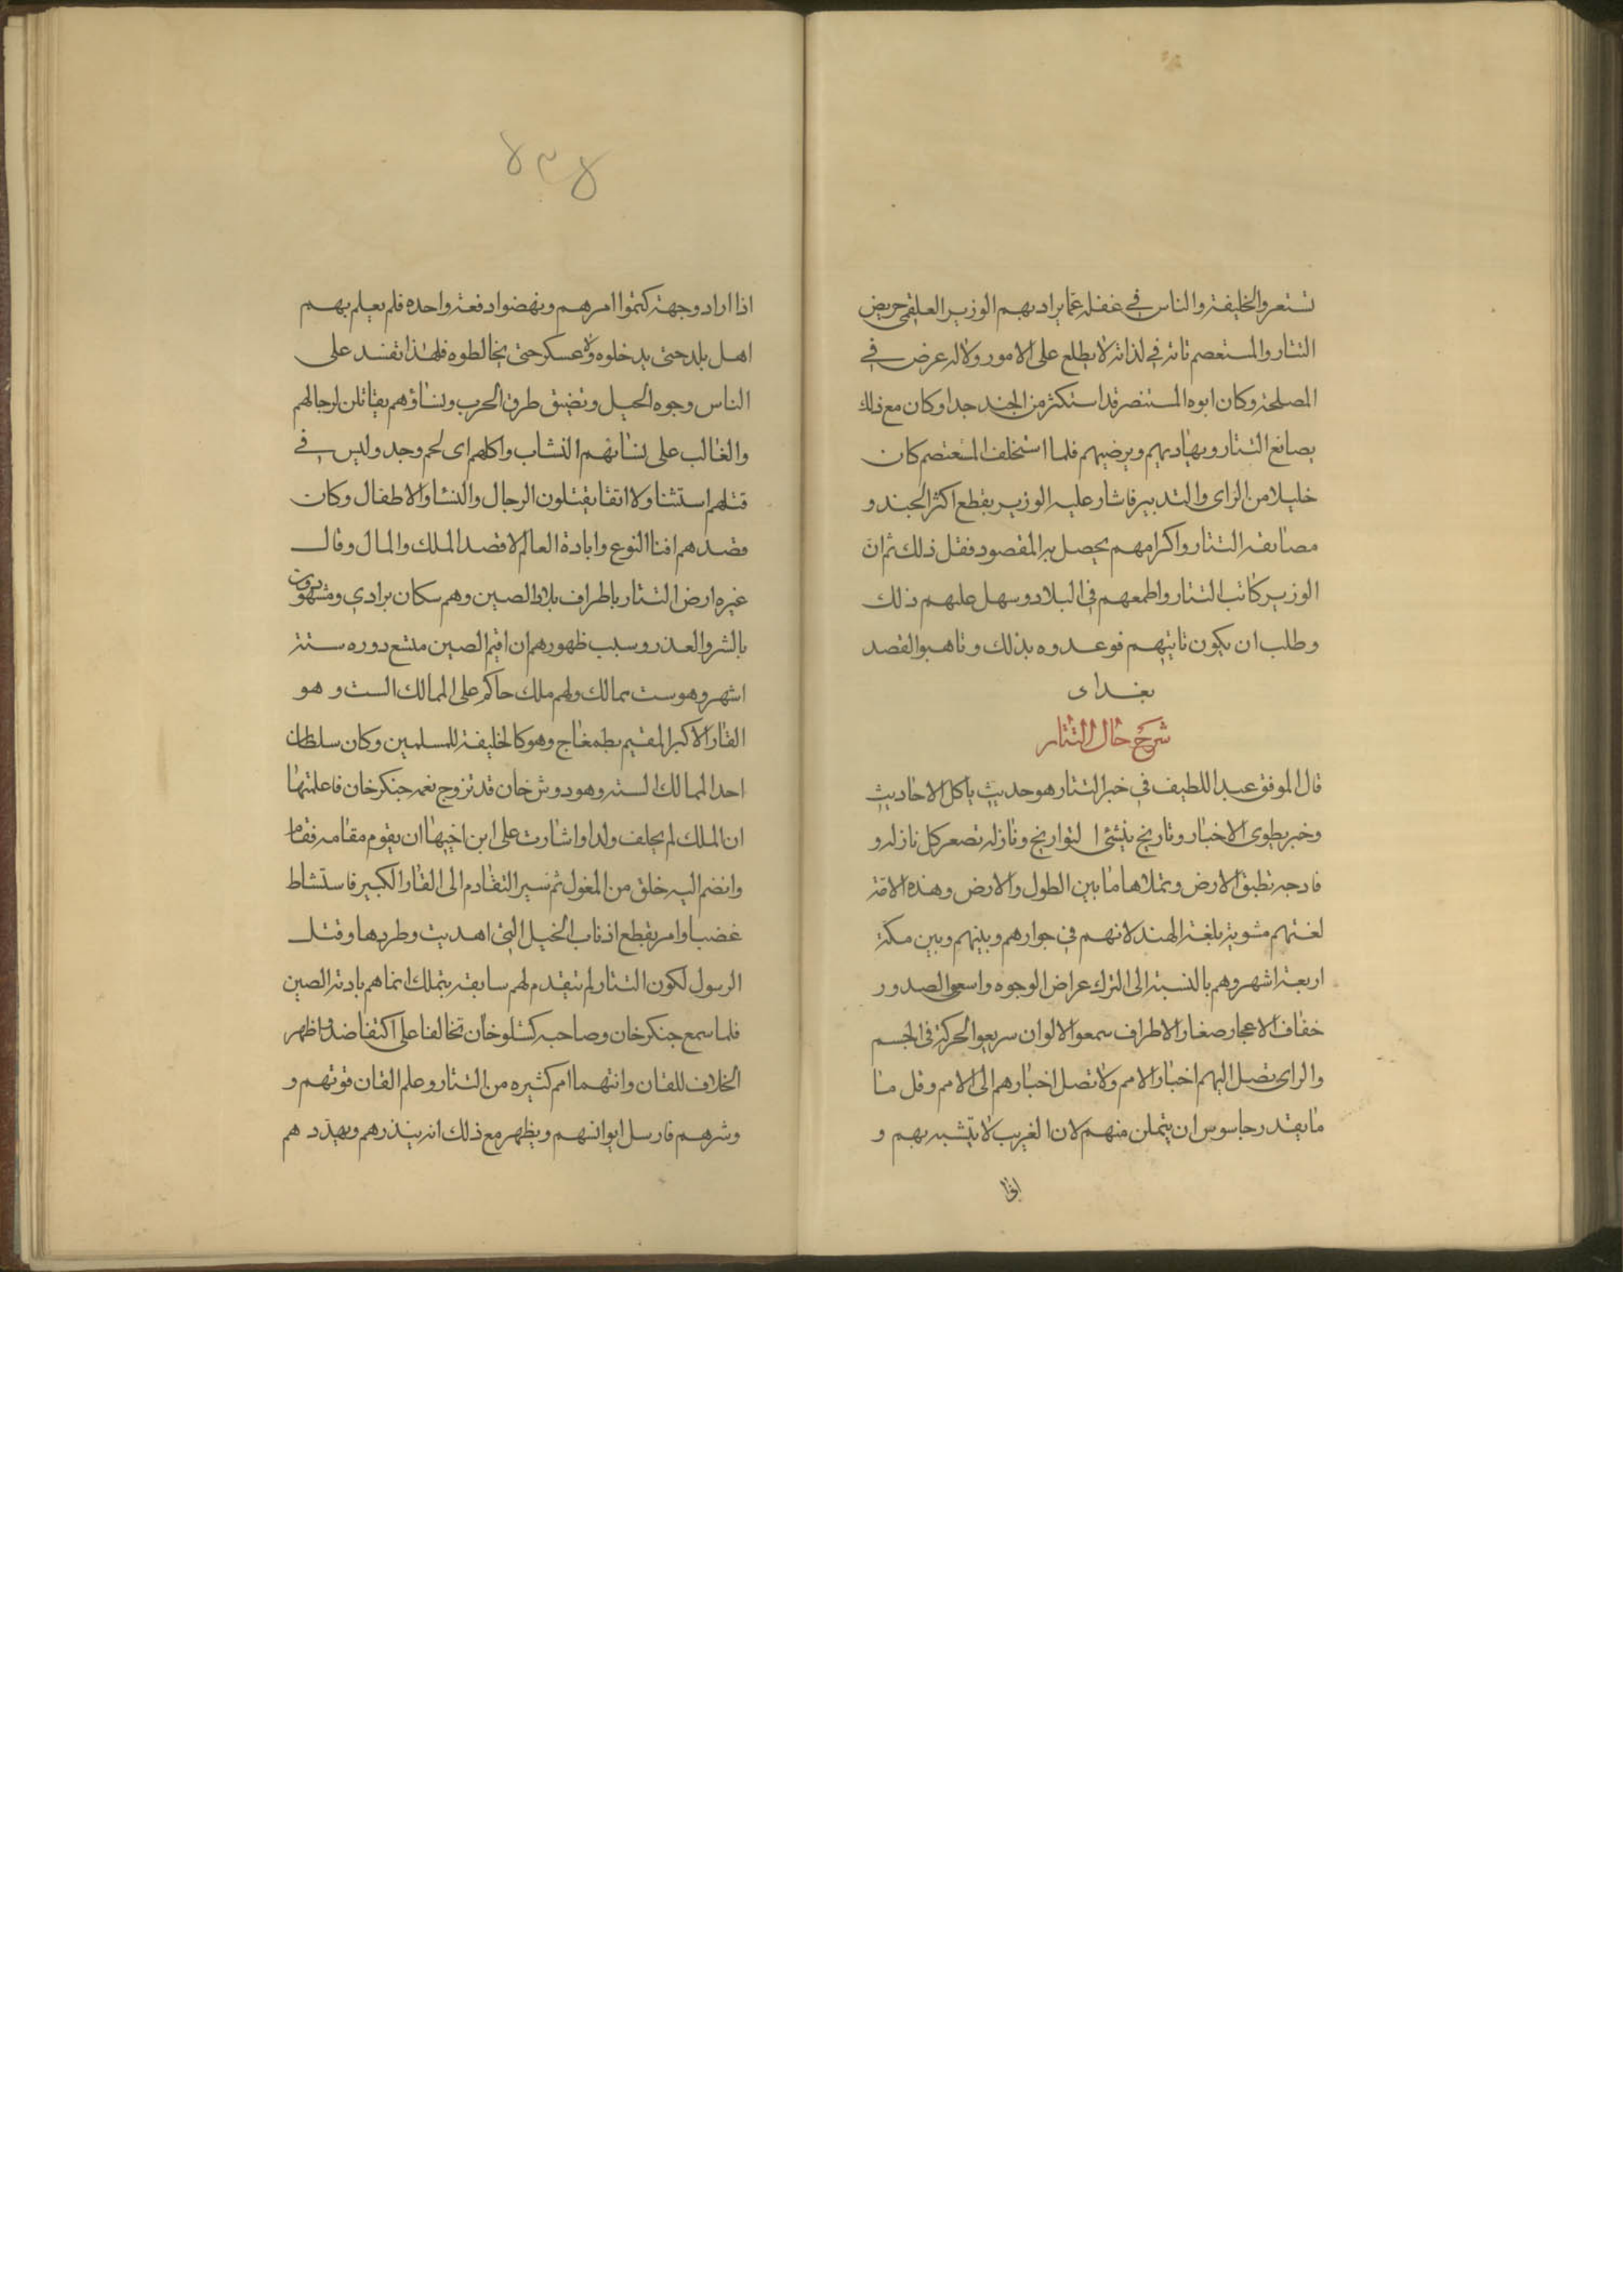 تستعر والخليفة والناس في غفلة عما يراد بهم الوزير العلقمي حريص
التتار والمستعصم تائه في لذاته لا يطلع على الامور ولا له عرض في
المصلحة وكان ابوه المستنصر قد استكثر من الجند جدا وكان مع ذلك
يصانع التتار ويهاديهم ويرضيهم فلما استخلف المستعصم كان
خليلا من الراى والتدبير فاشار عليه الوزير بقطع اكثر الجند و
مصانعة التتار واكرامهم يحصل به المقصود ففعل ذلك ثم ان
الوزير كاتب التتار واطمعهم في البلاد وسهل عليهم ذلك
وطلب ان يكون نائبهم فوعدوه بذلك وتاهبوا لقصد
بغداد
شرح حال التتار
قال الموفق عبد اللطيف في خبر التتار هو حديث ياكل الاحاديث
وخبر يطوى الاخبار وتاريخ ينسى التواريخ ونازلة تصغر كل نازلة و
فادحة تطبق الارض وتملاها ما بين الطول والارض وهذه الامة
لغتهم مشوبة بلغة الهند لانهم في جوارهم وبينهم وبين مكة
اربعة اشهر وهم بالنسبة الى الترك عراض الوجوه واسعوا الصدور
خفاف الاعجاز صغار الاطراف سمعوا الالوان سريعوا الحركة في الجسم
والراى تصل اليهم اخبار الامم ولا تصل اخبارهم الى الامم وقل ما
ما يقدر جاسوس ان يتمكن منهم لان الغريب لا يتشبه بهم و
اذا
٧٣٧
اذا اراد وجهة كتموا امرهم ونهضوا دفعة واحده فلم يعلم بهم
اهل بلد حتى يدخلوه ولا عسكر حتى يخالطوه فلهذا تفسد على
الناس وجوه الحيل وتضيق طرق الحرب ونساؤهم يقاتلن لرجالهم
والغالب على نسائهم النشاب واكلهم اى لحم وجد وليس في
قتلهم استثنا ولا ابقا يقتلون الرجال والنسا والاطفال وكان
قصدهم افنا النوع وابادة العالم لا قصد الملك والمال وقال
غيره ارض التتار باطراف بلاد الصين وهم سكان برادي ومشهورون
بالشر والعذر وسبب ظهورهم ان اقيم الصين متسع دوره ستة
اشهر وهو ست ممالك ولهم ملك حاكم على الممالك الست و هو
القان الاكبر المقيم بطمغاج وهو كالخليفة للمسلمين وكان سلطان
احد الممالك الستة وهو دوش خان قد تزوج بعمه جنكزخان فاعلمتها
ان الملك لم يخلف ولدا واشارت على ابن اخيها ان يقوم مقامه فقام
وانضم اليه خلق من المغول ثم سير التقادم الى القان الكبير فاستشاط
غضبا وامر بقطع اذناب الخيل التي اهديت وطردها وقتل
الرسول لكون التتار لم تتقدم لهم سابقة بتملك انما هم بادية الصين
فلما سمع جنكزخان وصاحبه كشلوخان تحالفا على التعاضد واظهر
الخلاف للقان وانتهما امم كثيره من التتار وعلم القان قوتهم و
وشرهم فارسل يوانسهم ويظهر مع ذلك انه ينذرهم ويهدد هم